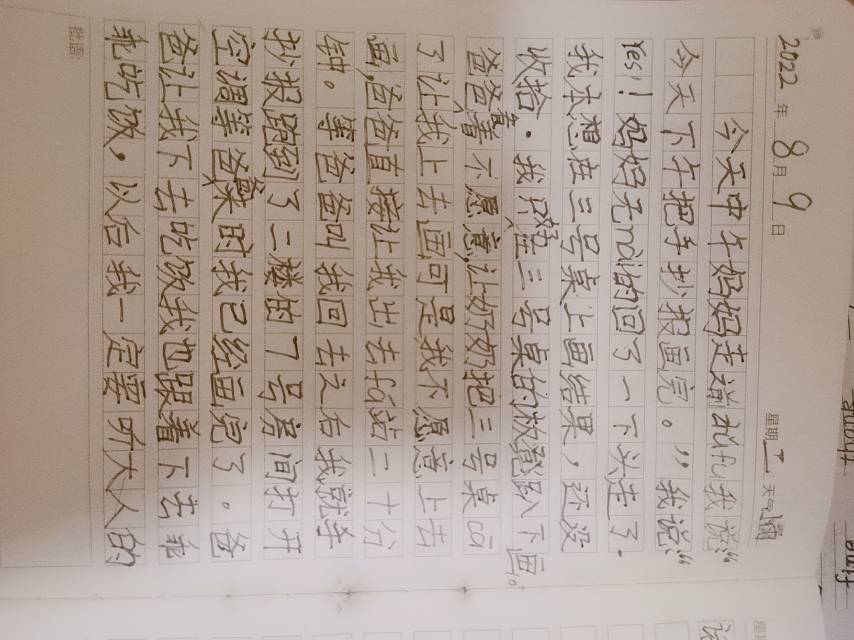 2022年8月9日 星期二 天气晴
今天中午妈妈走前来fù我说:“
今天下午把手抄报画完。”我说:“
Yes!!妈妈无nài的回了一下头走了.
我本想在三号桌上画结果,还没
收拾.我只好在三号桌的板凳趴下画。
爸爸看着不愿意,让奶奶把三号桌cā
了让我上去画可是我不愿意上去
画,爸爸直接让我出去fá站二十分
钟。等爸爸叫我回去之后我就拿
抄报跑到了二楼的7号房间打开
空调等爸爸来时我已经画完了。爸
爸让我下去吃饭我也跟着下去乖
乖吃饭,以后我一定要听大人的